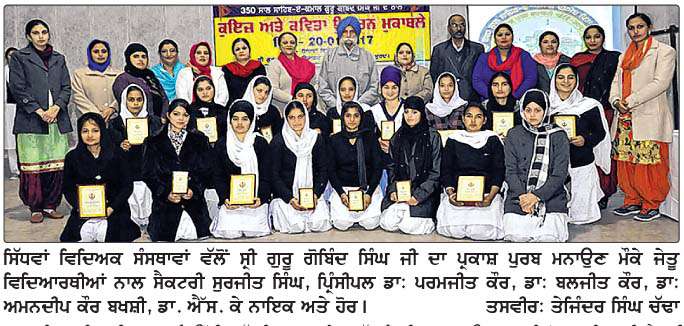 350 ਸਾਲ ਸਾਹਿਬ-ਏ-ਕਮਾਲ ਗੁਰੂ ਗੋਬਿੰਦ ਸਿੰਘ ਜੀ ਦੇ ਨਾਲ
ਕੁਇਜ਼ ਅਤੇ ਕਵਿਤਾ ਉਚਾਰਨ ਮੁਕਾਬਲੇ
20-01 17
ਸਿੱਧਵਾਂ ਵਿਦਿਅਕ ਸੰਸਥਾਵਾਂ ਵੱਲੋਂ ਸ੍ਰੀ ਗੁਰੂ ਗੋਬਿੰਦ ਸਿੰਘ ਜੀ ਦਾ ਪ੍ਰਕਾਸ਼ ਪੁਰਬ ਮਨਾਉਣ ਮੌਕੇ ਜੇਤੂ
ਵਿਦਿਆਰਥੀਆਂ ਨਾਲ ਸੈਕਟਰੀ ਸੁਰਜੀਤ ਸਿੰਘ, ਪ੍ਰਿੰਸੀਪਲ ਡਾਃ ਪਰਮਜੀਤ ਕੌਰ, ਡਾਃ ਬਲਜੀਤ ਕੌਰ, ਡਾਃ
ਅਮਨਦੀਪ ਕੌਰ ਬਖਸ਼ੀ, ਡਾ. ਐੱਸ. ਕੇ ਨਾਇਕ ਅਤੇ ਹੋਰ। ਤਸਵੀਰਃ ਤੇਜਿੰਦਰ ਸਿੰਘ ਚੱਢਾ